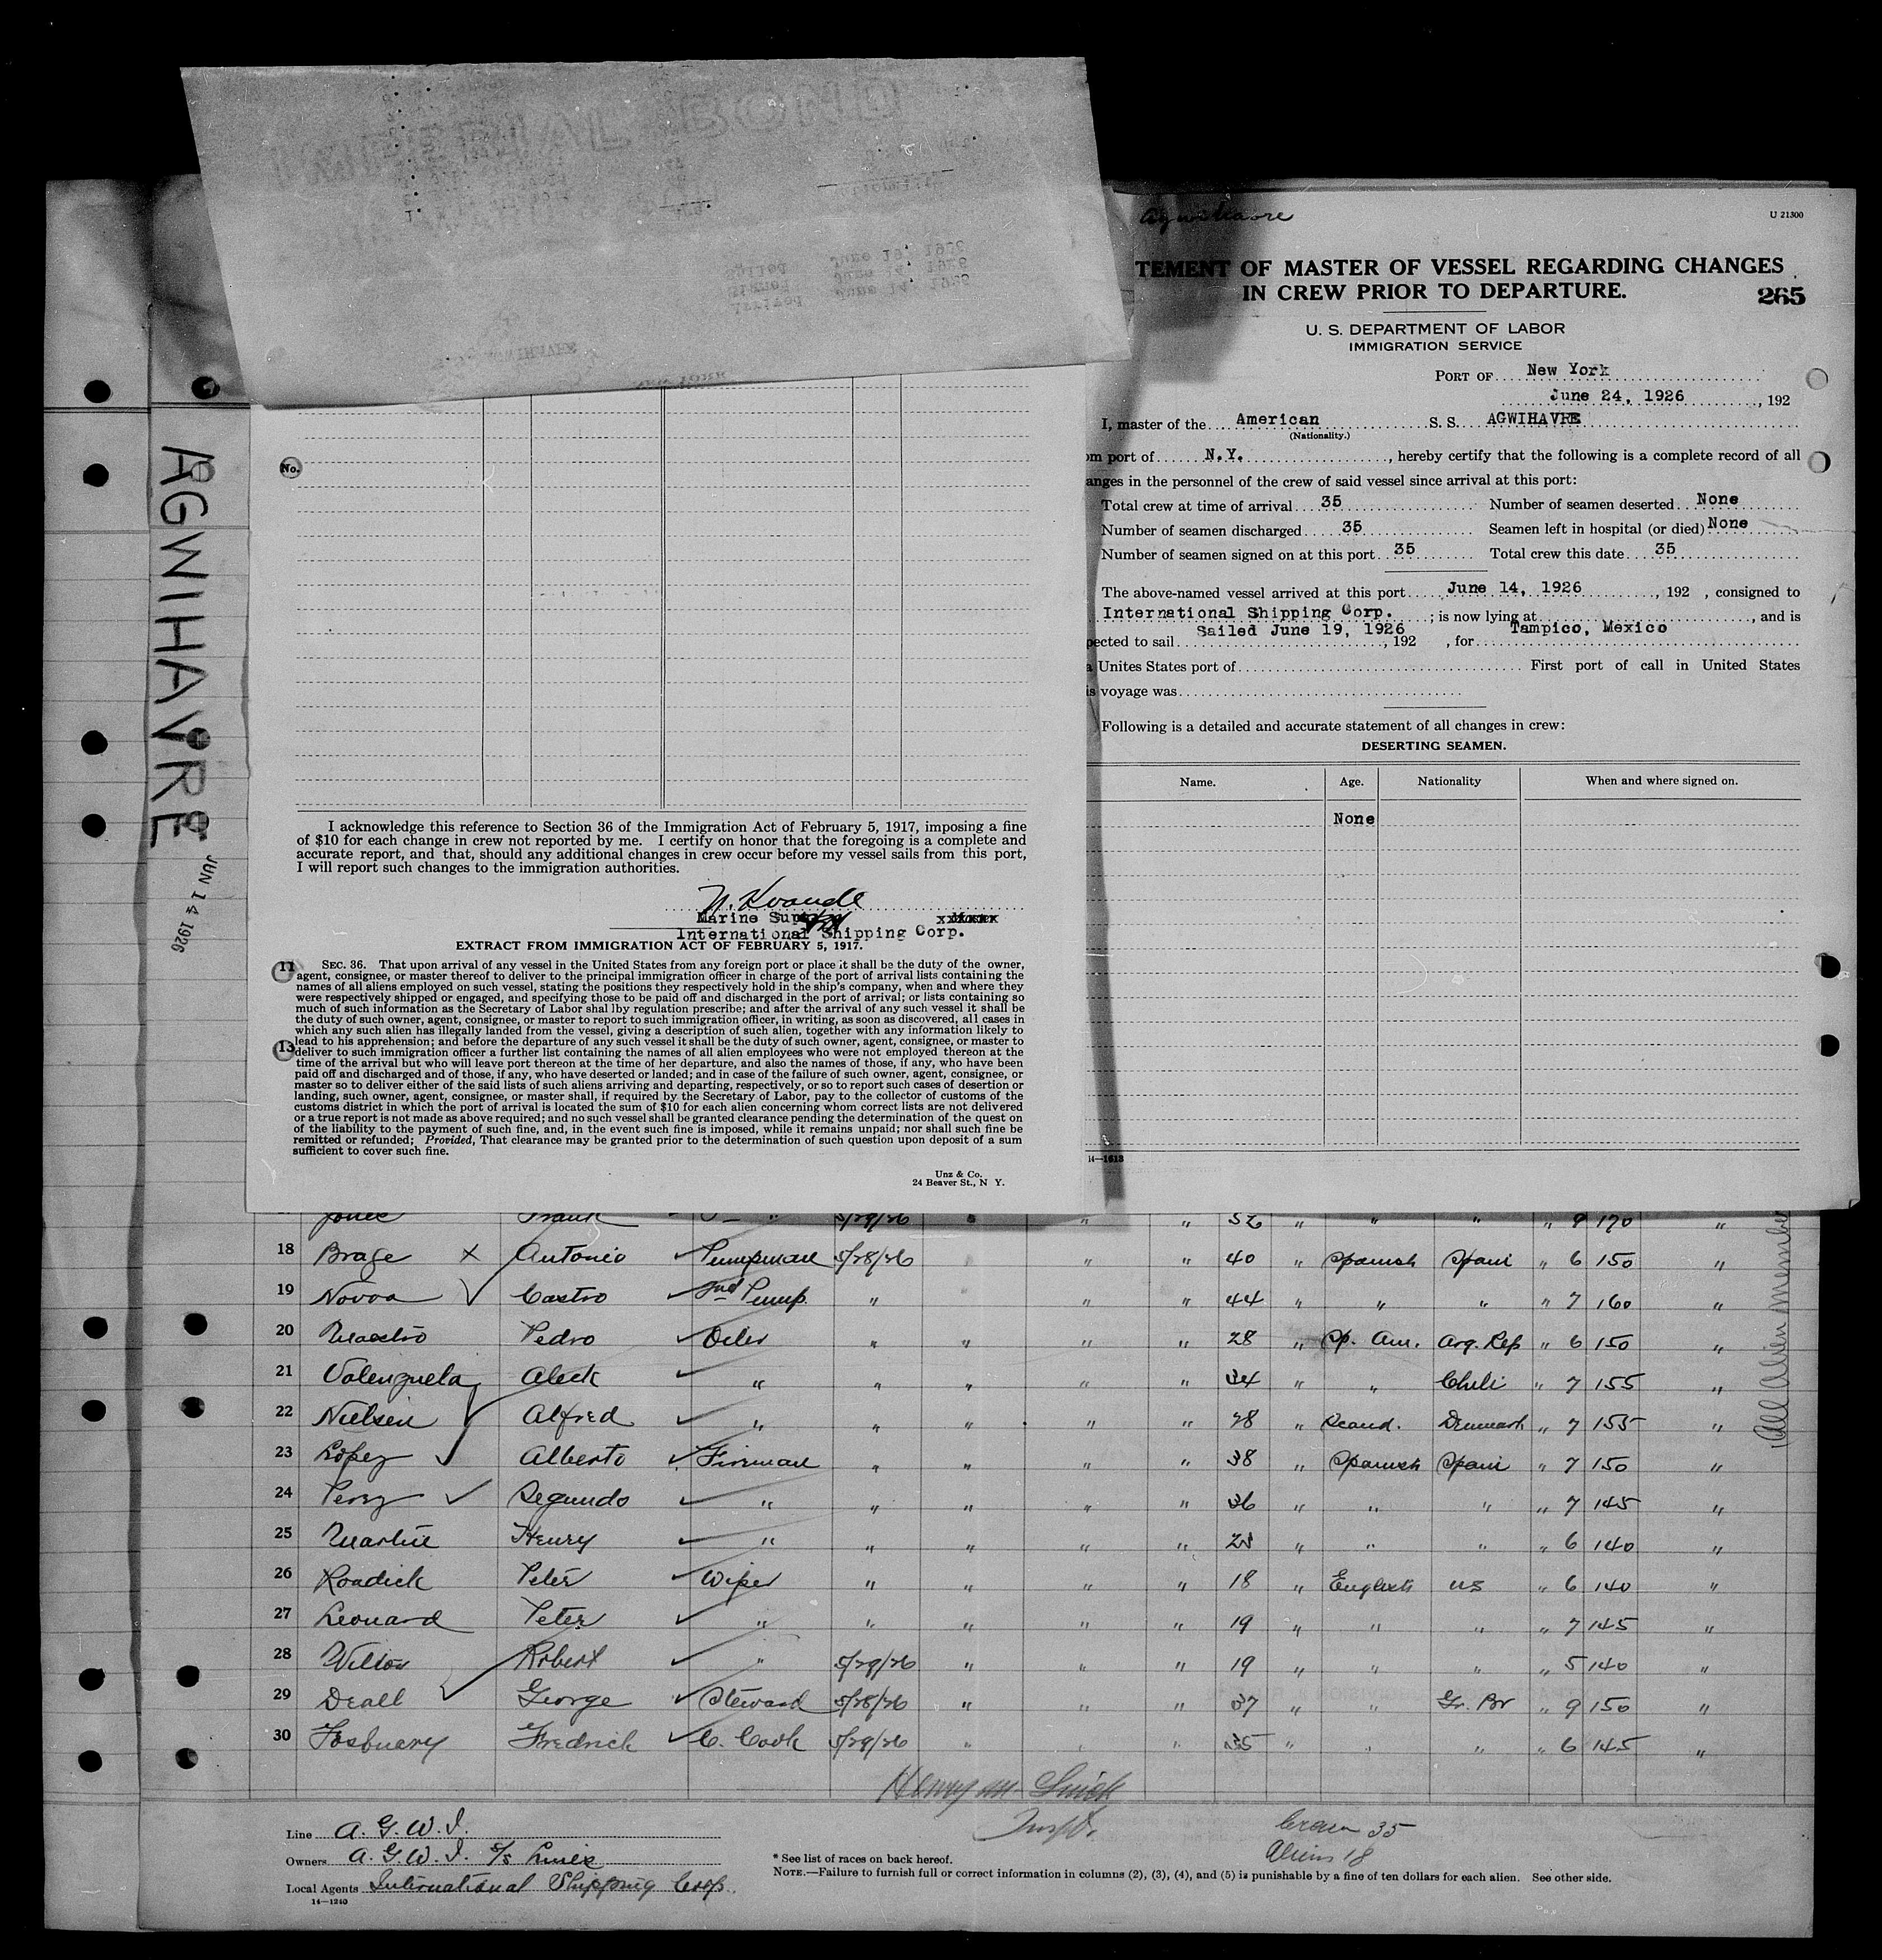 AGWIHAVRE
JUN 14 1926
No.
I acknowledge this reference to Section 36 of the Immigration Act of February 5, 1917, imposing a fine
of $10 for each change in crew not reported by me. I certify on honor that the foregoing is a complete and
accurate report, and that, should any additional changes in crew occur before my vessel sails from this port,
I will report such changes to the immigration authorities.
Marine Supt
International Shipping Corp.
EXTRACT FROM IMMIGRATION ACT OF FEBRUARY 5, 1917.
11
SEC. 36. That upon arrival of any vessel in the United States from any foreign port or place it shall be the duty of the owner,
agent, consignee, or master thereof to deliver to the principal immigration officer in charge of the port of arrival lists containing the
names of all aliens employed on such vessel, stating the positions they respectively hold in the ship's company, when and where they
were respectively shipped or engaged, and specifying those to be paid off and discharged in the port of arrival; or lists containing so
much of such information as the Secretary of Labor shal lby regulation prescribe; and after the arrival of any such vessel it shall be
the duty of such owner, agent, consignee, or master to report to such immigration officer, in writing, as soon as discovered, all cases in
which any such alien has illegally landed from the vessel, giving a description of such alien, together with any information likely to
lead to his apprehension; and before the departure of any such vessel it shall be the duty of such owner, agent, consignee, or master to
13
deliver to such immigration officer a further list containing the names of all alien employees who were not employed thereon at the
time of the arrival but who will leave port thereon at the time of her departure, and also the names of those, if any, who have been
paid off and discharged and of those, if any, who have deserted or landed; and in case of the failure of such owner, agent, consignee, or
master so to deliver either of the said lists of such aliens arriving and departing, respectively, or so to report such cases of desertion or
landing, such owner, agent, consignee, or master shall, if required by the Secretary of Labor, pay to the collector of customs of the
customs district in which the port of arrival is located the sum of $10 for each alien concerning whom correct lists are not delivered
or a true report is not made as above required; and no such vessel shall be granted clearance pending the determination of the quest on
of the liability to the payment of such fine, and, in the event such fine is imposed, while it remains unpaid; nor shall such fine be
remitted or refunded; Provided, That clearance may be granted prior to the determination of such question upon deposit of a sum
sufficient to cover such fine.
Unz & Co.
24 Beaver St., N Y.
Agwihavre
U 21300
TEMENT OF MASTER OF VESSEL REGARDING CHANGES
IN CREW PRIOR TO DEPARTURE.
265
U. S. DEPARTMENT OF LABOR
IMMIGRATION SERVICE
PORT OF New York
June 24, 1926, 192
I, master of the American S. S. AGWIHAVRE
(Nationality.)
om port of N.Y., hereby certify that the following is a complete record of all
anges in the personnel of the crew of said vessel since arrival at this port:
Total crew at time of arrival 35 Number of seamen deserted None
Number of seamen discharged 35 Seamen left in hospital (or died) None
Number of seamen signed on at this port 35 Total crew this date 35
The above-named vessel arrived at this port June 14, 1926, 192 , consigned to
International Shipping Corp. ; is now lying at , and is
pected to sail Sailed June 19, 1926, 192 , for Tampico, Mexico
a Unites States port of First port of call in United States
is voyage was
Following is a detailed and accurate statement of all changes in crew:
DESERTING SEAMEN.
Name. Age. Nationality When and where signed on.
None
14—1613
Jones Frank " 5/29/26 " " " 32 " " " " 9 170 "
18 Brage X Antonio Pumpman 5/28/26 " " 40 " Spanish Spain " 6 150 "
19 Novoa Castro 2nd Pump. " " " 44 " " " " 7 160 "
20 Maestro Pedro Oiler " " " 28 " Sp. Am. Arg. Rep " 6 150 "
21 Valenzuela Aleck " " " " 34 " " Chili " 7 155 "
22 Nielsen Alfred " " " " " 28 " Scand. Denmark " 7 155 "
23 Lopez Alberto Fireman " " " " 38 " Spanish Spain " 7 150 "
24 Perez Segundo " " " " " 36 " " " " 7 145 "
25 Martin Henry " " " " " 28 " " " " 6 140 "
26 Roadick Peter Wiper " " " " 18 " English US " 6 140 "
27 Leonard Peter " " " " " 19 " " " " 7 145 "
28 Wilton Robert " 5/29/26 " " " 19 " " " " 5 140 "
29 Deall George Steward 5/28/26 " " " 37 " " Gr. Br " 9 150 "
30 Fosbuary Fredrick C. Cook 5/29/26 " " " 35 " " " " 6 145 "
All Alien member
Inspt.
Line A. G. W. I.
Owners A. G. W. I. S/S Lines
Local Agents International Shipping Corp.
14—1240
Crew 35
Aliens 18
* See list of races on back hereof.
NOTE.—Failure to furnish full or correct information in columns (2), (3), (4), and (5) is punishable by a fine of ten dollars for each alien. See other side.